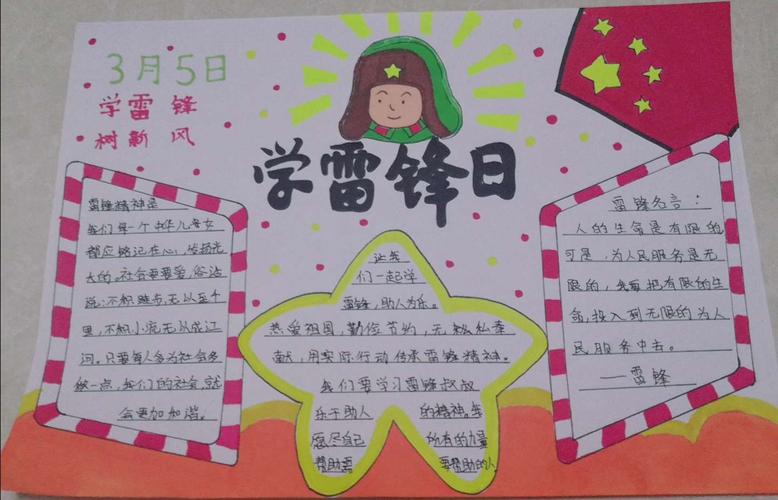 3月5日
学雷锋
树新风
学雷锋日
雷锋精神是
我们每一个中华儿女
都应铭记在心，发扬光
大的。社会要要爱，俗话
说：不积跬步，无以至千
里，不积小流无以成江
河。只要每人多为社会多
做一点，我们的社会就
会更加和谐。
让我
们一起学
雷锋，助人为乐。
热爱祖国，勤俭节约，无私奉
献，用实际行动传承雷锋精神。
我们要学习雷锋叔叔
乐于助人 的精神，
愿尽自己 所有的力量
帮助 要帮助的人
雷锋名言：
人的生命是有限的
可是，为人民服务是无
限的，我要把有限的生
命，投入到无限的为人
民服务中去。
——雷锋